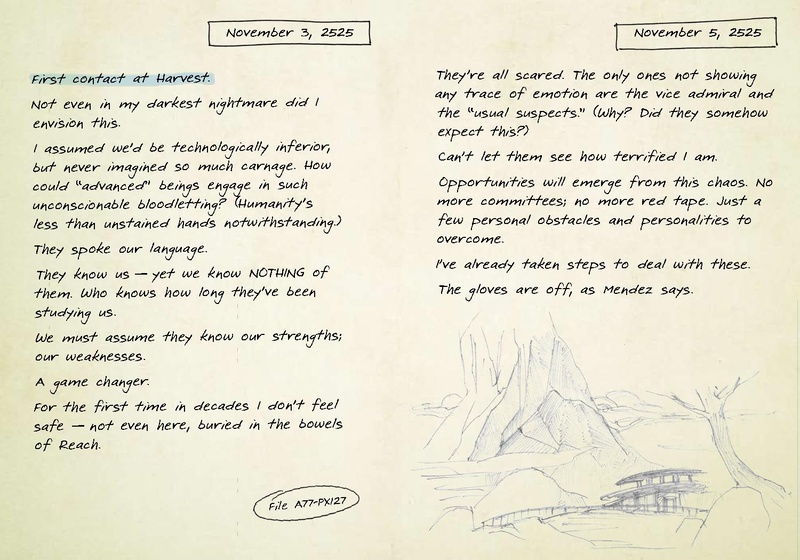 November 3, 2525
First contact at Harvest.
Not even in my darkest nightmare did I
envision this.
I assumed we'd be technologically inferior,
but never imagined so much carnage. How
could "advanced" beings engage in such
unconscionable bloodletting? (Humanity's
less than unstained hands notwithstanding.)
They spoke our language.
They know us — yet we know NOTHING of
them. Who knows how long they've been
studying us.
We must assume they know our strengths;
our weaknesses.
A game changer.
For the first time in decades I don't feel
safe — not even here, buried in the bowels
of Reach.
File A77-PX127
November 5, 2525
They're all scared. The only ones not showing
any trace of emotion are the vice admiral and
the "usual suspects." (Why? Did they somehow
expect this?)
Can't let them see how terrified I am.
Opportunities will emerge from this chaos. No
more committees; no more red tape. Just a
few personal obstacles and personalities to
overcome.
I've already taken steps to deal with these.
The gloves are off, as Mendez says.